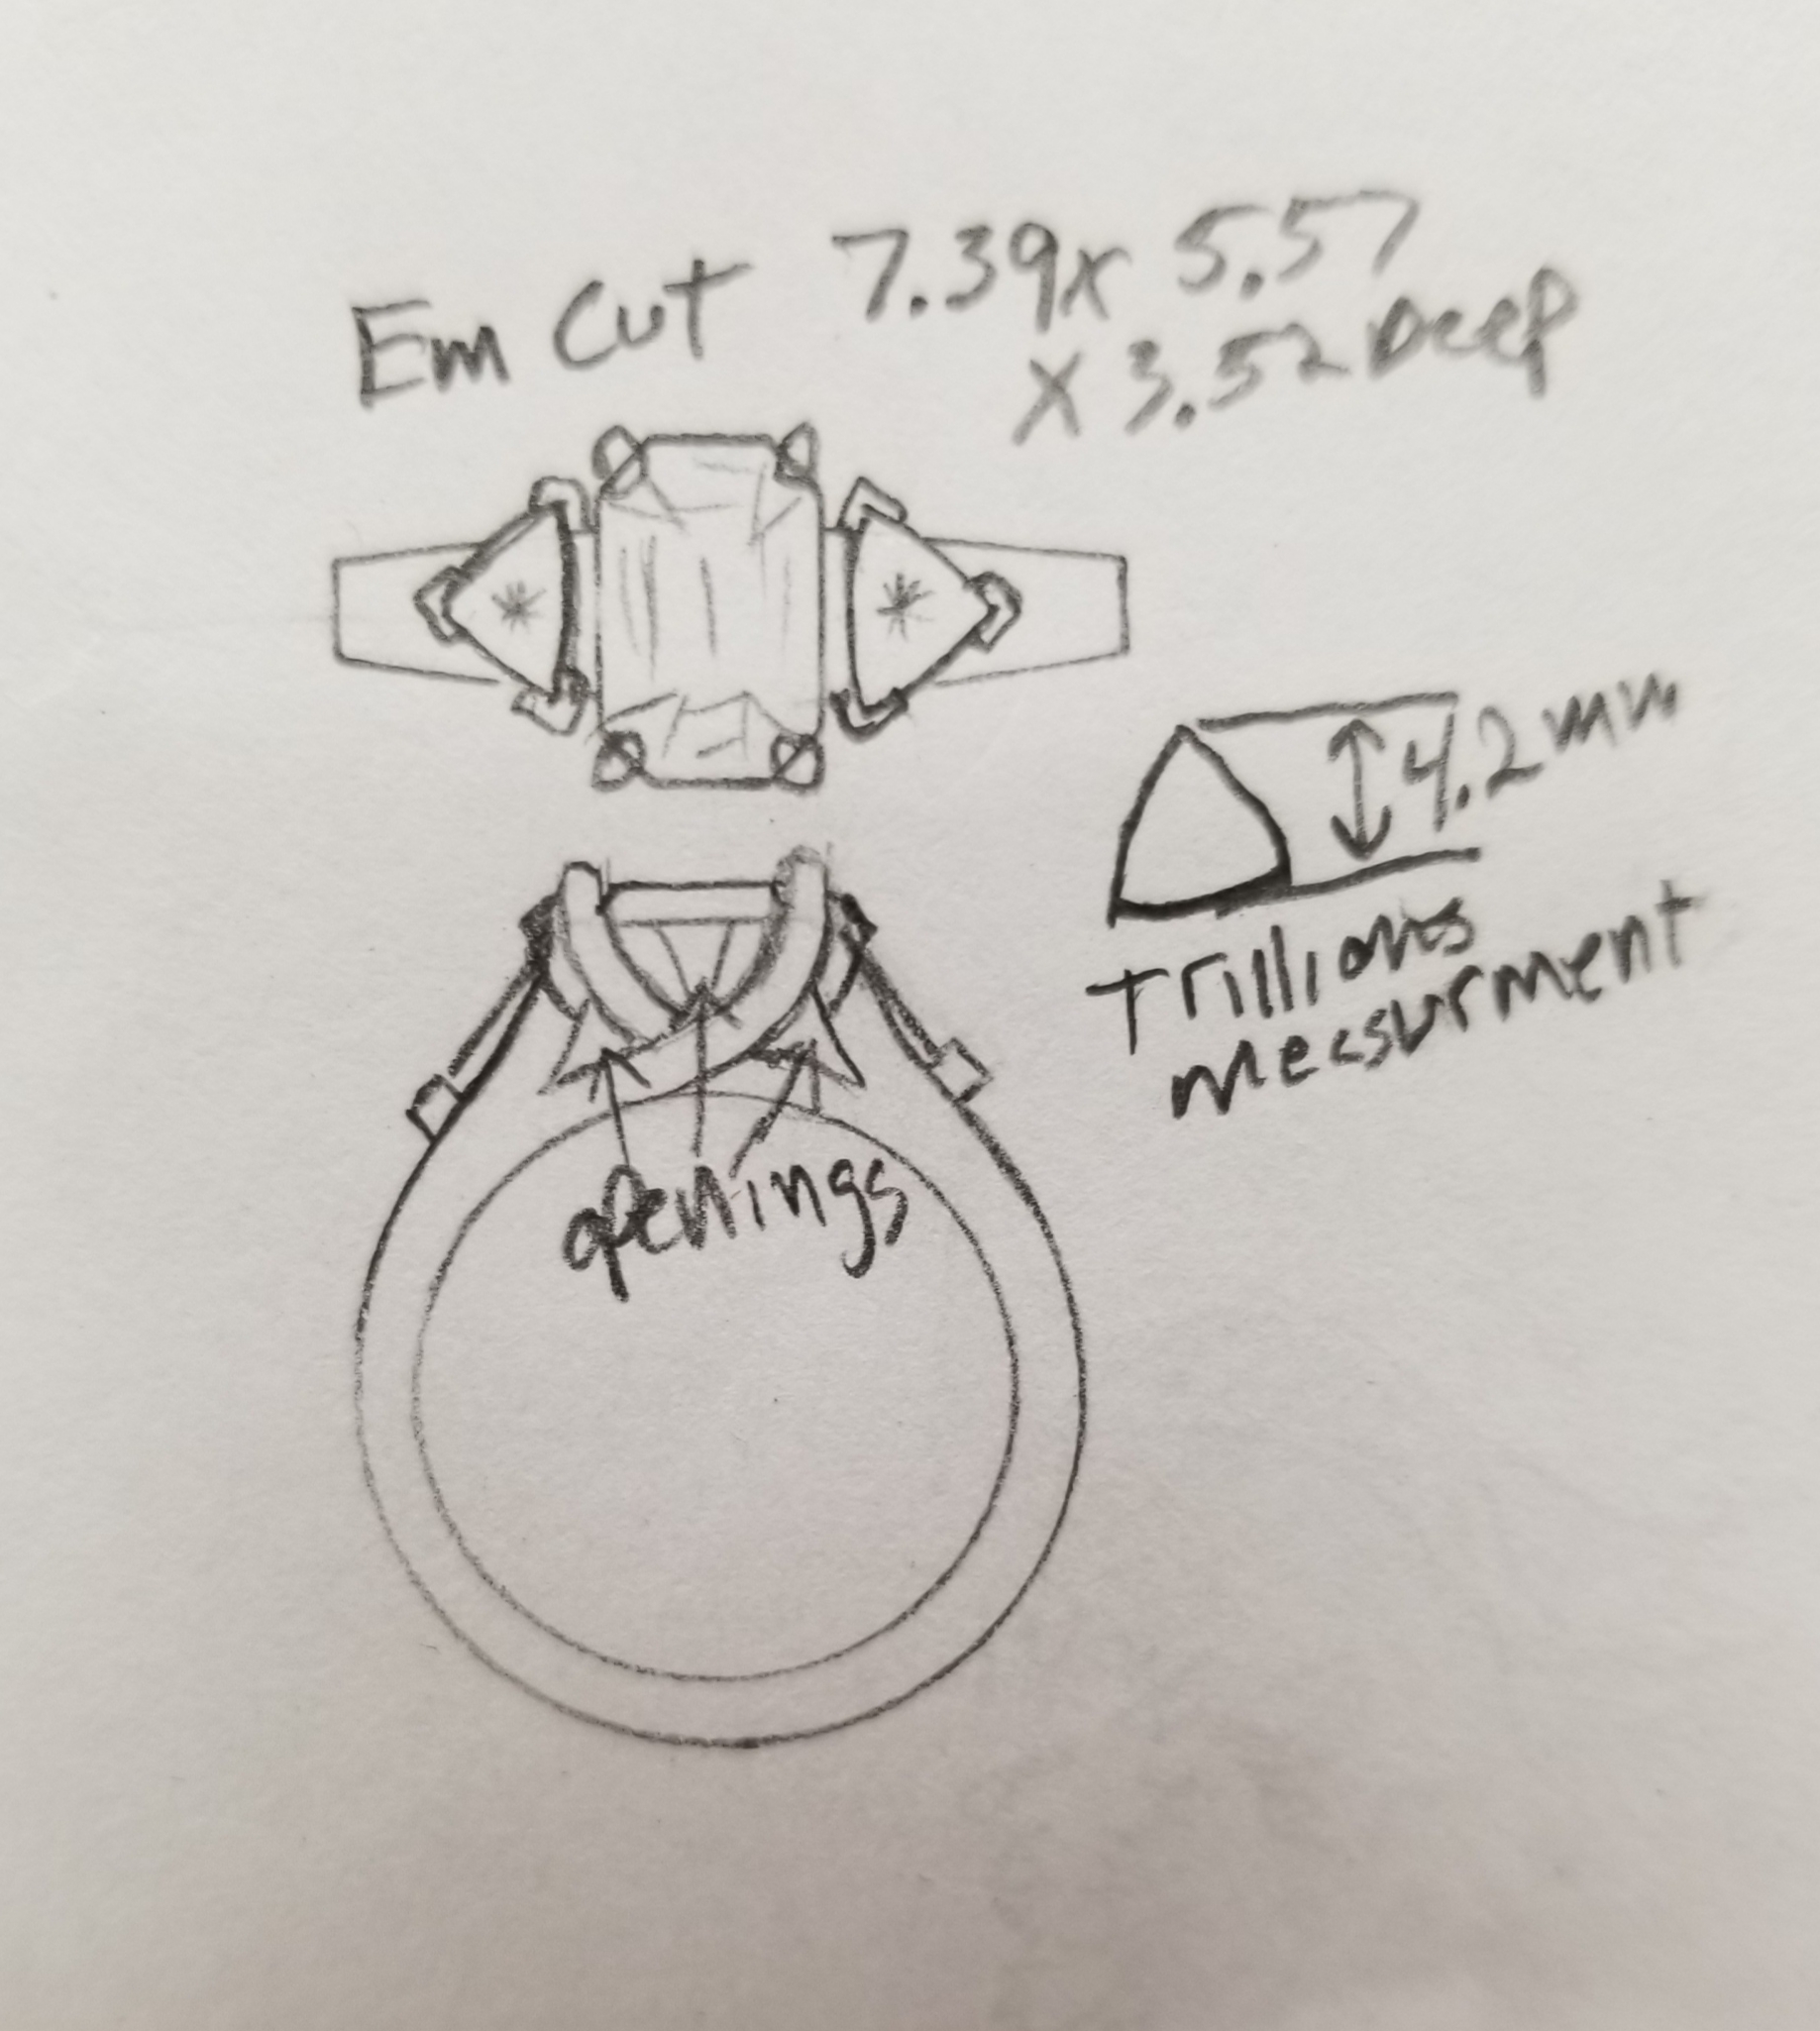 Em Cut 7.39 x 5.57
x 3.52 Deep
4.2 mm
Trillions
mecsurment
openings